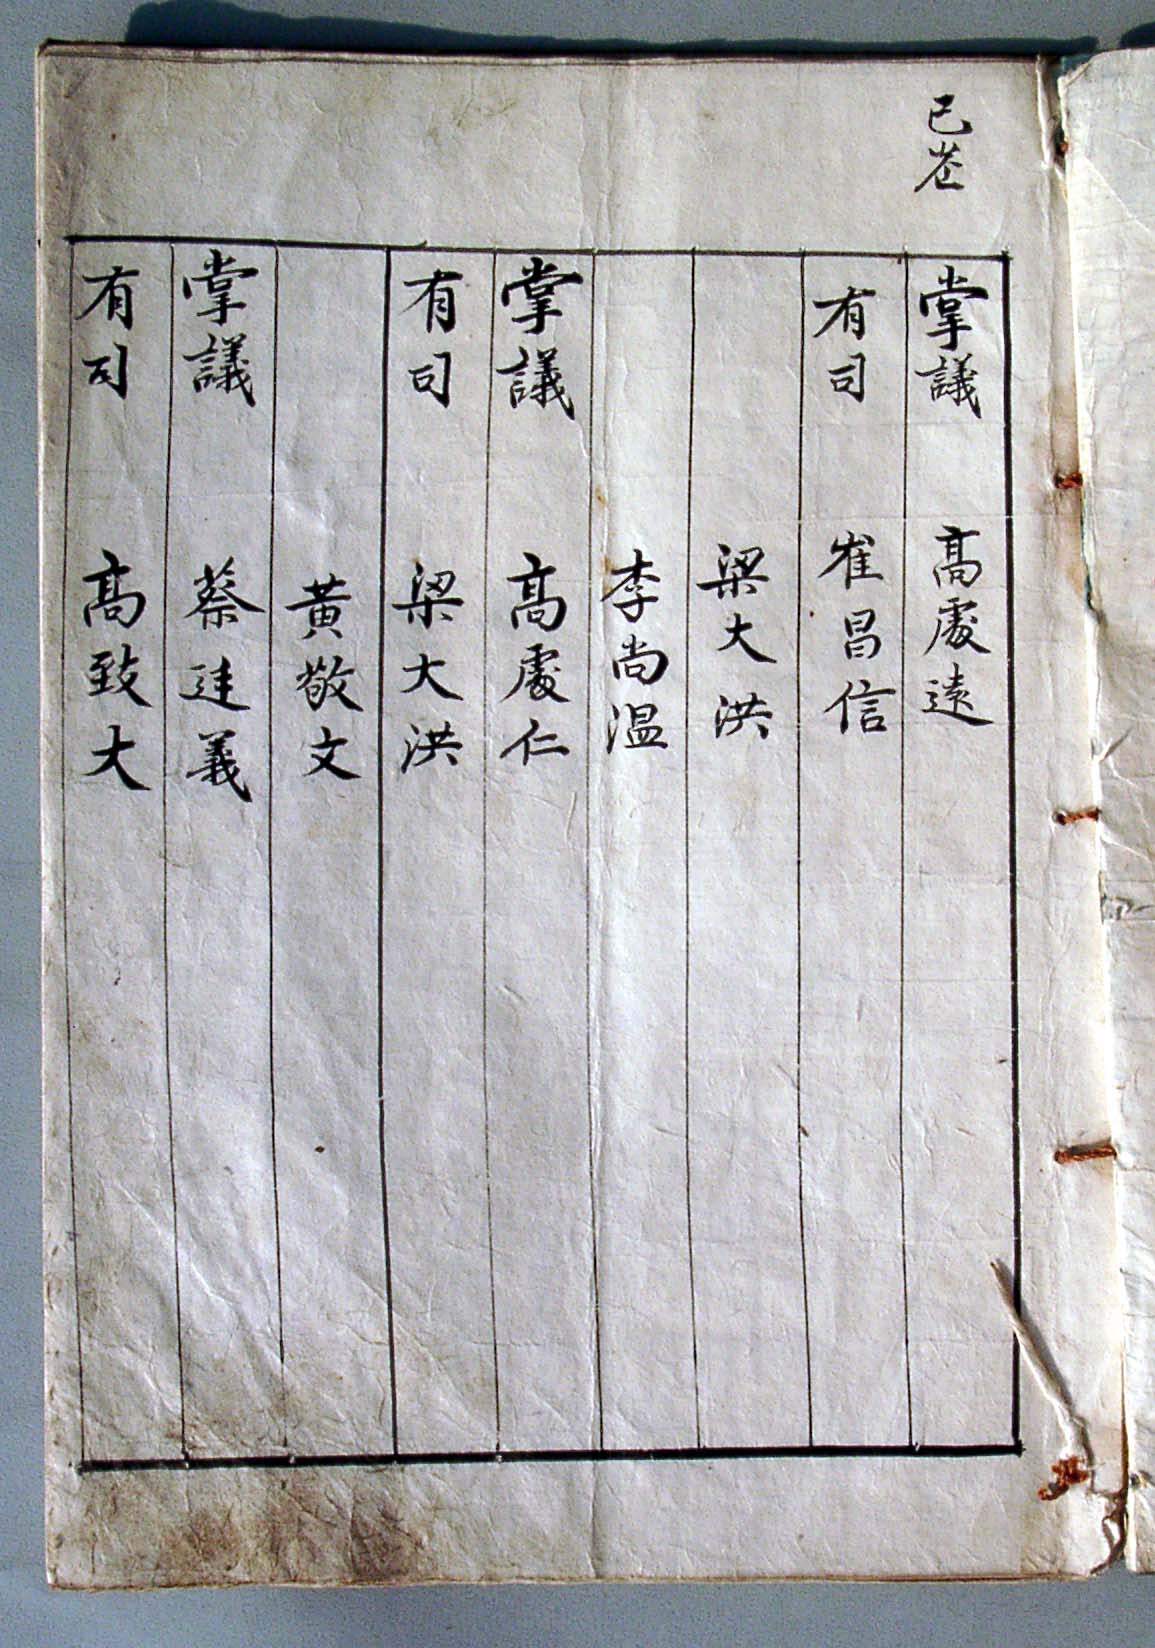 己
掌議 高處遠
有司 崔昌信
梁大洪
李尚溫
掌議 高處仁
有司 梁大洪
黃敬文
掌議 蔡廷義
有司 高致大